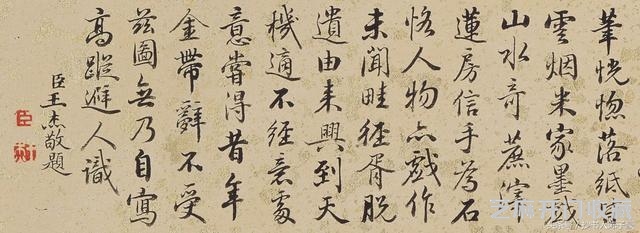 筆恍惚落紙生
雲烟米家墨戲
山水奇蔗滓
蓮房信手為石
恪人物亦戲作
未聞畦徑胥脫
遺由来興到天
機適不經意處
意嘗得昔年
金帶辭不受
茲圖無乃自寫
高蹤遯人識
臣王杰敬題
臣